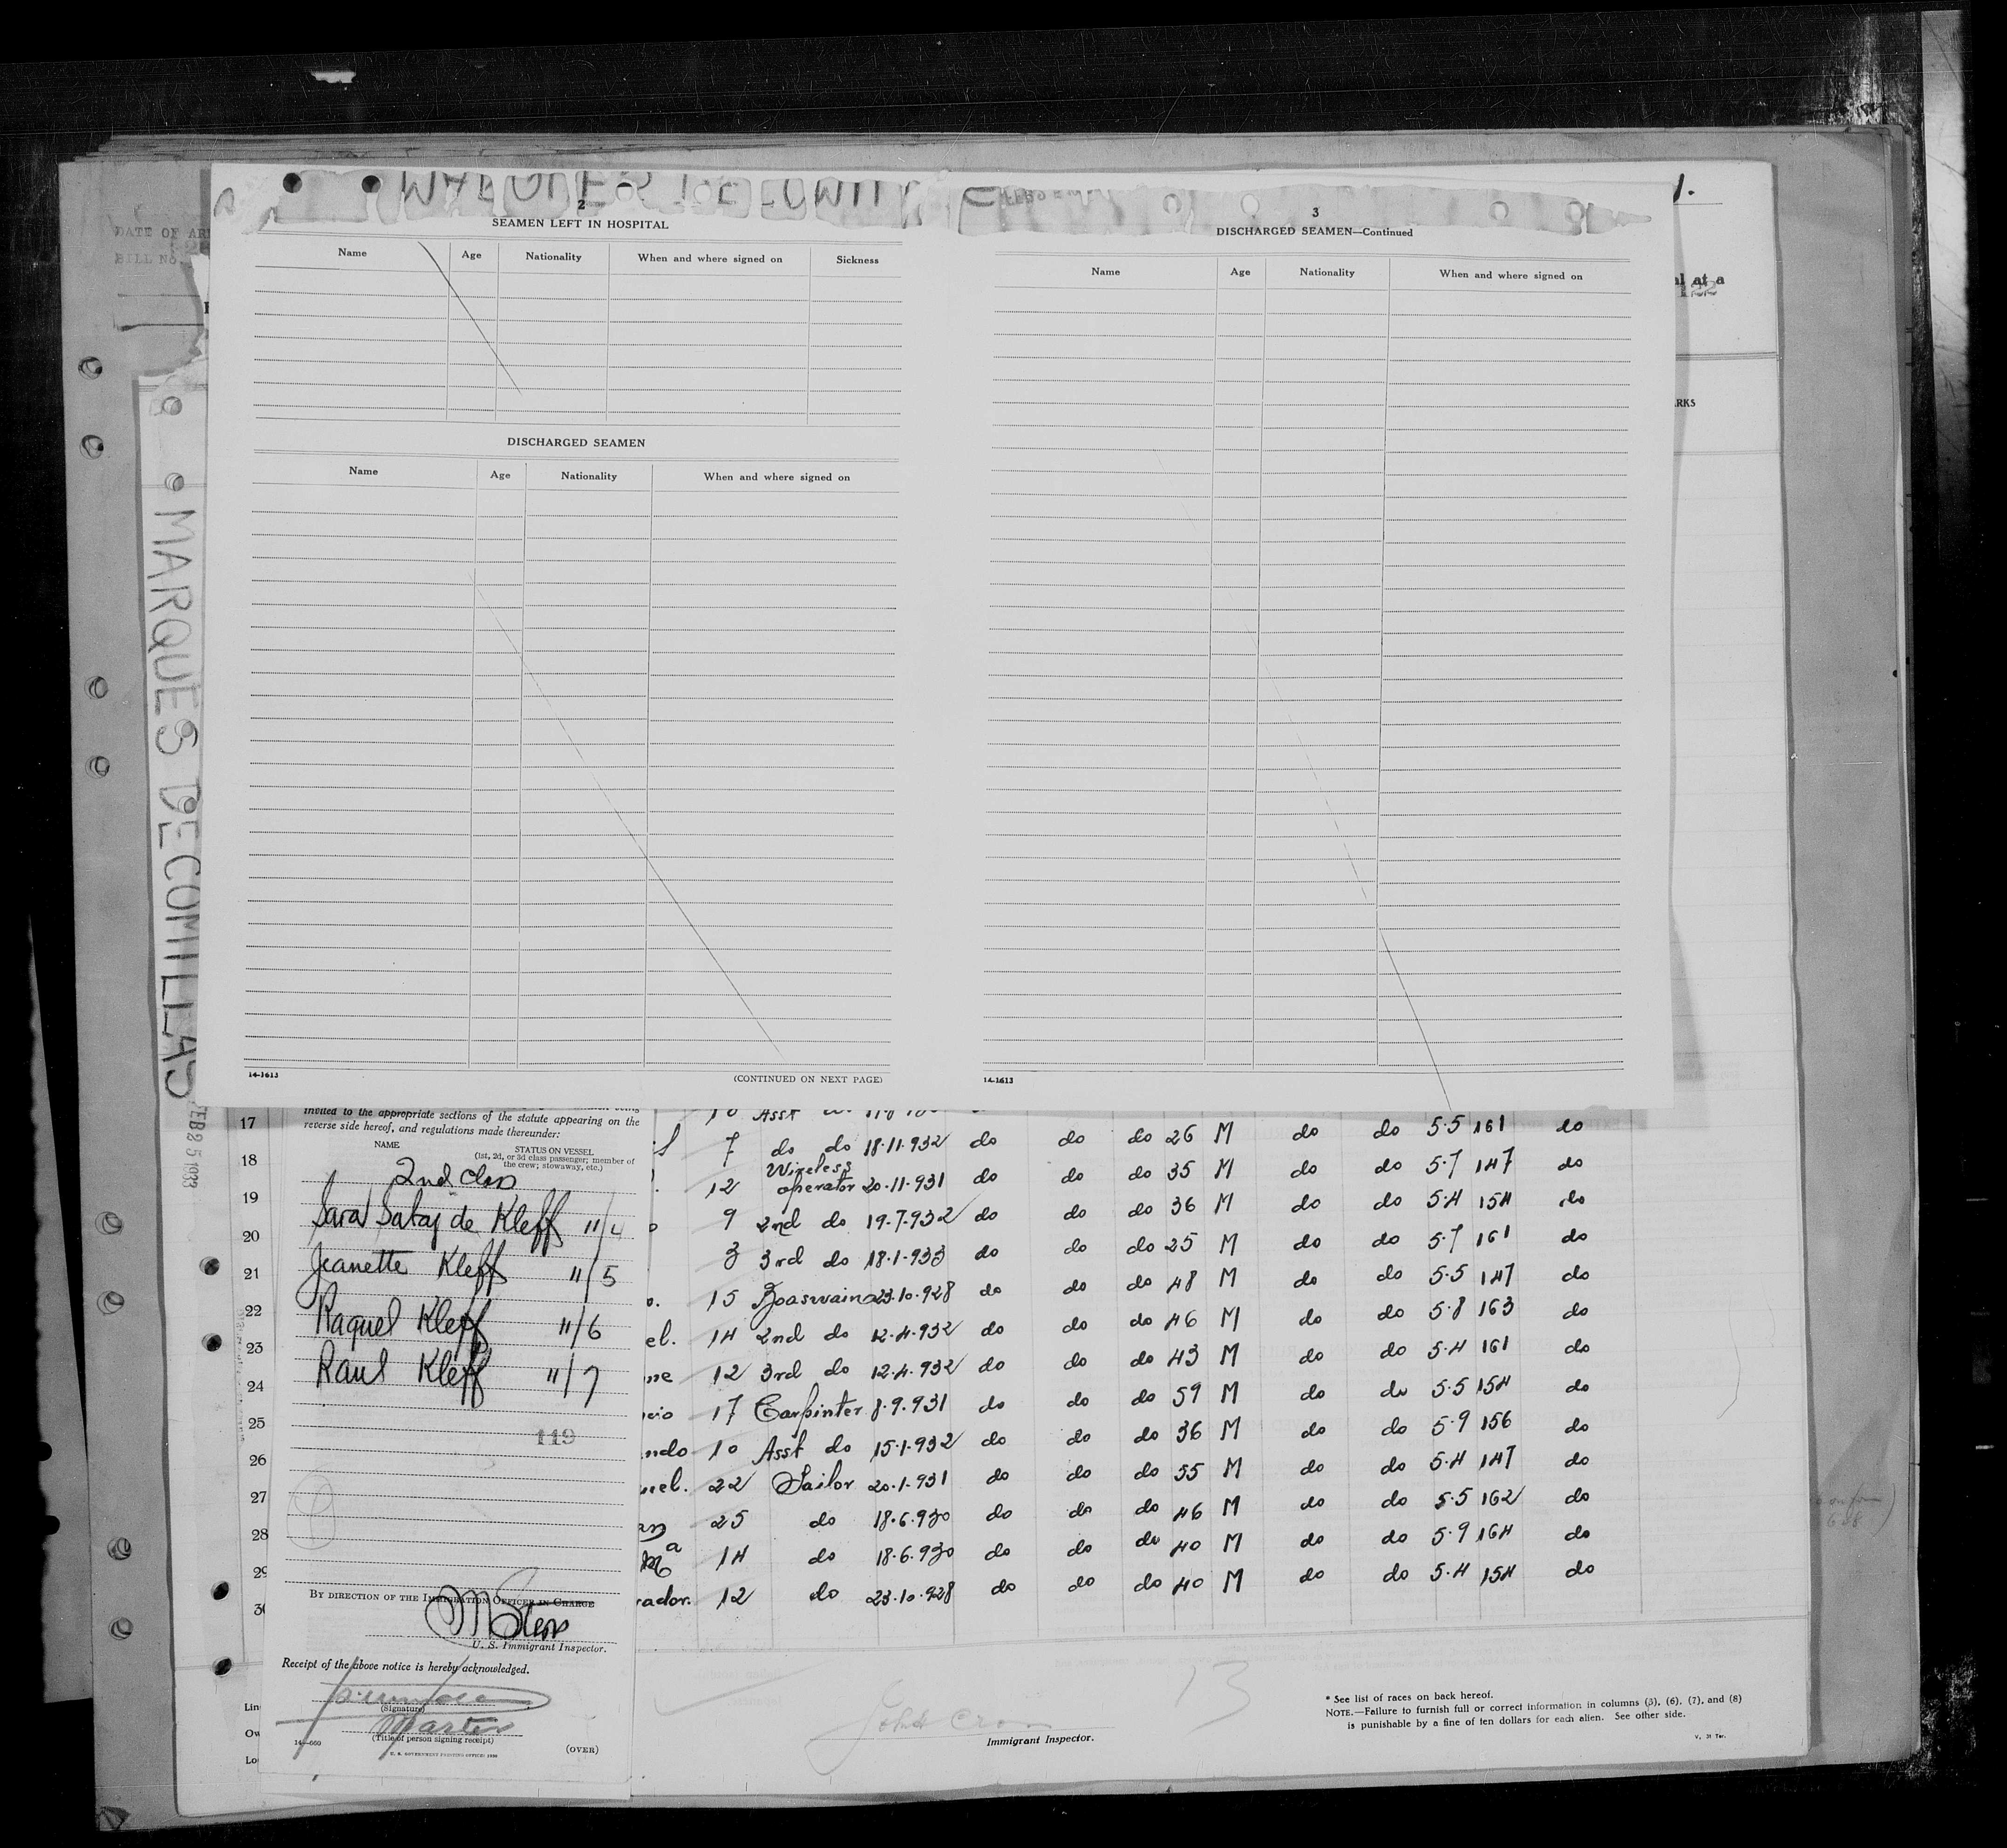 DATE OF ARR
BILL NO.
2
SEAMEN LEFT IN HOSPITAL
Name Age Nationality When and where signed on Sickness
DISCHARGED SEAMEN
Name Age Nationality When and where signed on
14-1613
(CONTINUED ON NEXT PAGE)
3
DISCHARGED SEAMEN—Continued
Name Age Nationality When and where signed on
14-1613
al at a
ARKS
MARQUES DE COMILLAS
FEB 25 1933
invited to the appropriate sections of the statute appearing on the
reverse side hereof, and regulations made thereunder:
NAME STATUS ON VESSEL
(1st, 2d, or 3d class passenger; member of
the crew; stowaway, etc.)
2nd class
Sara Satay de Kleff "/4
Jeanette Kleff "/5
Raquel Kleff "/6
Raul Kleff "/7
119
BY DIRECTION OF THE IMMIGRATION OFFICER IN CHARGE
U. S. Immigrant Inspector.
Receipt of the above notice is hereby acknowledged.
(Signature)
Master
(Title of person signing receipt)
14-660
U. S. GOVERNMENT PRINTING OFFICE
(OVER)
17
18
19
20
21
22
23
24
25
26
27
28
29
30
Lin
Ow
Lo
10 Asst
7 do do 18.11.932 do do do 26 M do do 5.5 161 do
12 Wireless operator 20.11.931 do do do 35 M do do 5.7 147 do
9 2nd do 19.7.932 do do do 36 M do do 5.4 154 do
3 3rd do 18.1.933 do do do 25 M do do 5.7 161 do
15 Boaswain 23.10.928 do do do 48 M do do 5.5 147 do
el. 14 2nd do 12.4.932 do do do 46 M do do 5.8 163 do
ne 12 3rd do 12.4.932 do do do 43 M do do 5.4 161 do
cio 17 Carpinter 8.9.931 do do do 59 M do do 5.5 154 do
ndo 10 Asst do 15.1.932 do do do 36 M do do 5.9 156 do
uel. 22 Sailor 20.1.931 do do do 55 M do do 5.4 147 do
an 25 do 18.6.930 do do do 46 M do do 5.5 162 do
Mª 14 do 18.6.930 do do do 40 M do do 5.9 164 do
rador. 12 do 23.10.928 do do do 40 M do do 5.4 154 do
13
Immigrant Inspector.
* See list of races on back hereof.
NOTE.—Failure to furnish full or correct information in columns (3), (6), (7), and (8)
is punishable by a fine of ten dollars for each alien. See other side.
V. 31 Ter.